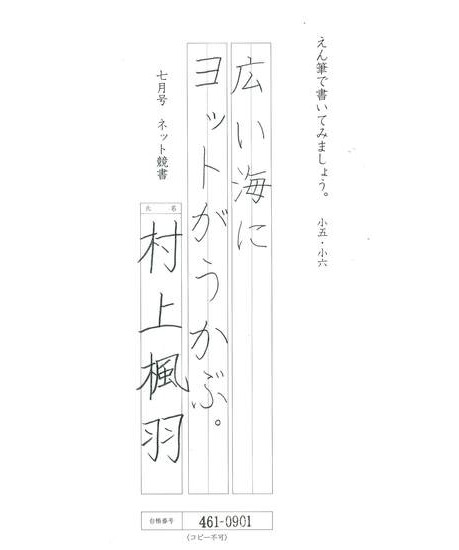 えん筆で書いてみましょう。 小五・小六
広い海に
ヨットがうかぶ。
七月号 ネット競書
氏名
村上楓羽
台帳番号 461-0901
(コピー不可)